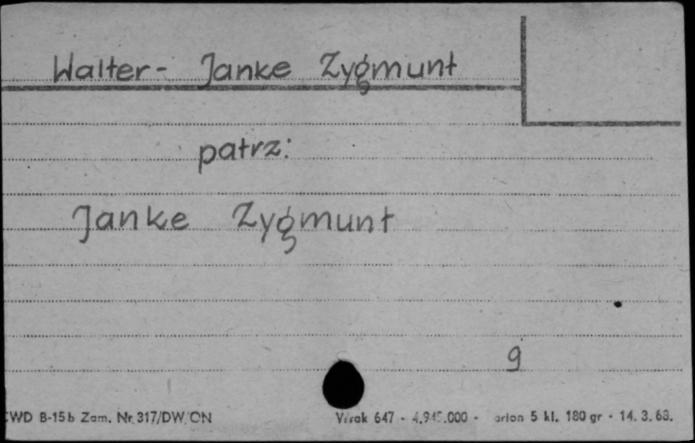 Walter- Janke Zygmunt
patrz:
Janke Zygmunt
9
WD B-15b Zam. Nr 317/DW/CN 647 - .000 - 5 kl. 180 gr - 14. 3. 63.